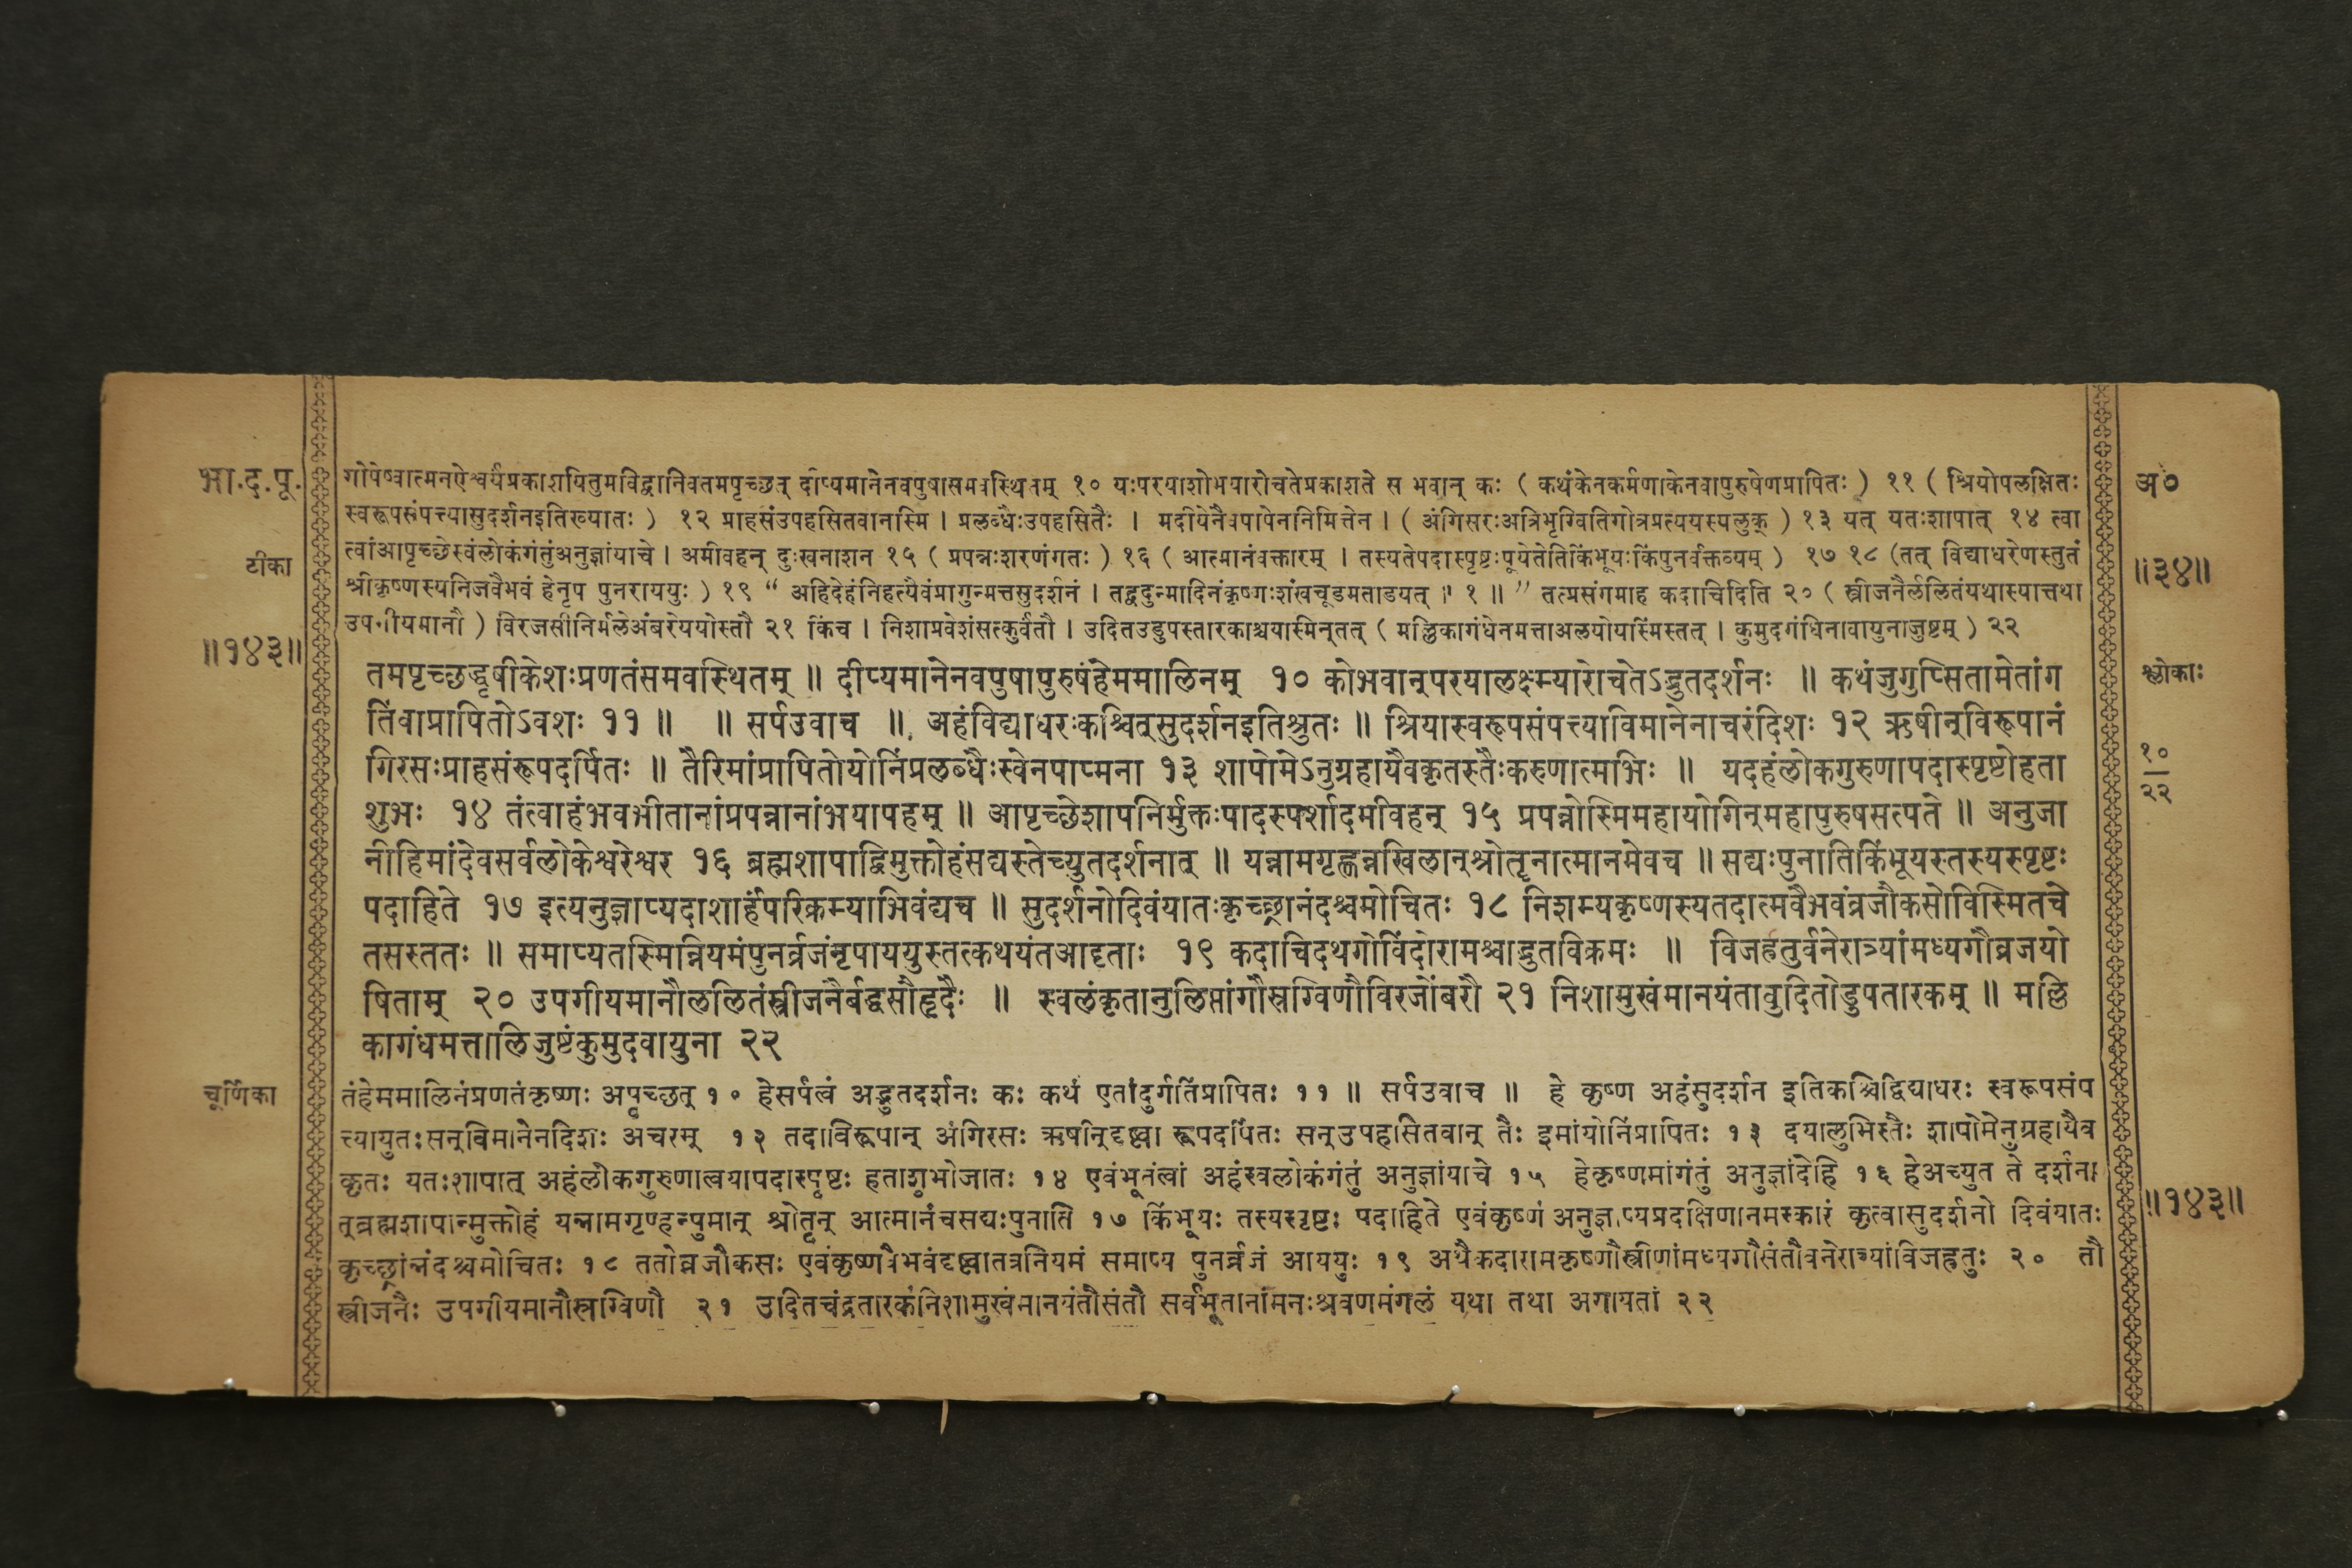 भा.द.पू.
टीका
॥१४३॥
गोपेष्वात्मनऐश्वर्यंप्रकाशयितुमविद्वानिवतमपृच्छत् दीप्यमानेनवपुषासमवस्थितम् १० यःपरयाशोभयारोचतेप्रकाशते स भवान् कः ( कथंकेनकर्मणाकेनवापुरुषेणप्रापितः ) ११ ( श्रियोपलक्षितः
स्वरूपसंपत्त्यासुदर्शनइतिख्यातः ) १२ प्राहसंउपहसितवानस्मि । प्रलब्धैःउपहसितैः । मदीयेनैवपापेननिमित्तेन । ( अंगिरसःअत्रिभृग्वितिगोत्रप्रत्ययस्यलुक् ) १३ यत् यतःशापात् १४ त्वा
त्वांआपृच्छेस्वंलोकंगंतुंअनुज्ञांयाचे । अमीवहन् दुःखनाशन १५ ( प्रपन्नःशरणंगतः ) १६ ( आत्मानंवक्तारम् । तस्यतेपदास्पृष्टःपूयेतेतिकिंभूयःकिंपुनर्वक्तव्यम् ) १७ १८ (तत् विद्याधरेणस्तुतं
श्रीकृष्णस्यनिजवैभवं हेनृप पुनराययुः ) १९ “ अहिदेहंनिहत्यैवंप्रागुन्मत्तसुदर्शनं । तद्वदुन्मादिनंकृष्णःशंखचूडमताडयत् ॥ १ ॥ ” तत्प्रसंगमाह कदाचिदिति २० ( स्त्रीजनैर्ललितंयथास्यात्तथा
उपगीयमानौ ) विरजसीनिर्मलेअंबरेययोस्तौ २१ किंच । निशाप्रवेशंसत्कुर्वंतौ । उदितउडुपस्तारकाश्चयास्मिन्तत् ( मल्लिकागंधेनमत्ताअलयोयस्मिंस्तत् । कुमुदगंधिनावायुनाजुष्टम् ) २२
तमपृच्छद्धृषीकेशःप्रणतंसमवस्थितम् ॥ दीप्यमानेनवपुषापुरुषंहेममालिनम् १० कोभवान्परयालक्ष्म्यारोचतेऽद्भुतदर्शनः ॥ कथंजुगुप्सितामेतांग
तिंवाप्रापितोऽवशः ११ ॥ ॥ सर्पउवाच ॥ अहंविद्याधरःकश्चित्सुदर्शनइतिश्रुतः ॥ श्रियास्वरूपसंपत्त्याविमानेनाचरंदिशः १२ ऋषीन्विरूपानं
गिरसःप्राहसंरूपदर्पितः ॥ तैरिमांप्रापितोयोनिंप्रलब्धैःस्वेनपाप्मना १३ शापोमेऽनुग्रहायैवकृतस्तैःकरुणात्मभिः ॥ यदहंलोकगुरुणापदास्पृष्टोहता
शुभः १४ तंत्वाहंभवभीतानांप्रपन्नानांभयापहम् ॥ आपृच्छेशापनिर्मुक्तःपादस्पर्शादमीवहन् १५ प्रपन्नोस्मिमहायोगिन्महापुरुषसत्पते ॥ अनुजा
नीहिमांदेवसर्वलोकेश्वरेश्वर १६ ब्रह्मशापाद्विमुक्तोहंसद्यस्तेच्युतदर्शनात् ॥ यन्नामगृह्णन्नखिलान्श्रोतॄनात्मानमेवच ॥ सद्यःपुनातिकिंभूयस्तस्यस्पृष्टः
पदाहिते १७ इत्यनुज्ञाप्यदाशार्हंपरिक्रम्याभिवंद्यच ॥ सुदर्शनोदिवंयातःकृच्छ्रान्नंदश्चमोचितः १८ निशम्यकृष्णस्यतदात्मवैभवंव्रजौकसोविस्मितचे
तसस्ततः ॥ समाप्यतस्मिन्नियमंपुनर्व्रजंनृपाययुस्तत्कथयंतआदृताः १९ कदाचिदथगोविंदोरामश्चाद्भुतविक्रमः ॥ विजह्रतुर्वनेरात्र्यांमध्यगौव्रजयो
षिताम् २० उपगीयमानौललितंस्त्रीजनैर्बद्धसौहृदैः ॥ स्वलंकृतानुलिप्तांगौस्रग्विणौविरजोंबरौ २१ निशामुखंमानयंतावुदितोडुपतारकम् ॥ मल्लि
कागंधमत्तालिजुष्टंकुमुदवायुना २२
चूर्णिका
तंहेममालिनंप्रणतंकृष्णः अपृच्छत् १० हेसर्पत्वं अद्भुतदर्शनः कः कथं एतांदुर्गतिंप्रापितः ११ ॥ सर्पउवाच ॥ हे कृष्ण अहंसुदर्शन इतिकश्चिद्विद्याधरः स्वरूपसंप
त्त्यायुतःसन्विमानेनदिशः अचरम् १२ तदाविरूपान् अंगिरसः ऋषीन्दृष्ट्वा रूपदर्पितः सन्उपहसितवान् तैः इमांयोनिंप्रापितः १३ दयालुभिस्तैः शापोमेनुग्रहायैव
कृतः यतःशापात् अहंलोकगुरुणात्वयापदास्पृष्टः हताशुभोजातः १४ एवंभूतंत्वां अहंस्वलोकंगंतुं अनुज्ञांयाचे १५ हेकृष्णमांगंतुं अनुज्ञांदेहि १६ हेअच्युत ते दर्शना
त्ब्रह्मशापान्मुक्तोहं यन्नामगृण्हन्पुमान् श्रोतॄन् आत्मानंचसद्यःपुनाति १७ किंभूयः तस्यस्पृष्टः पदाहिते एवंकृष्णं अनुज्ञाप्यप्रदक्षिणानमस्कारं कृत्वासुदर्शनो दिवंयातः
कृच्छ्रांन्नंदश्चमोचितः १८ ततोव्रजौकसः एवंकृष्णवैभवंदृष्ट्वातत्रनियमं समाप्य पुनर्व्रजं आययुः १९ अथैकदारामकृष्णौस्त्रीणांमध्यगौसंतौवनेरात्र्यांविजह्रतुः २० तौ
स्त्रीजनैः उपगीयमानौस्रग्विणौ २१ उदितचंद्रतारकंनिशामुखंमानयंतौसंतौ सर्वभूतानांमनःश्रवणमंगलं यथा तथा अगायतां २२
अ०
॥३४॥
श्लोकाः
१०
२२
॥१४३॥